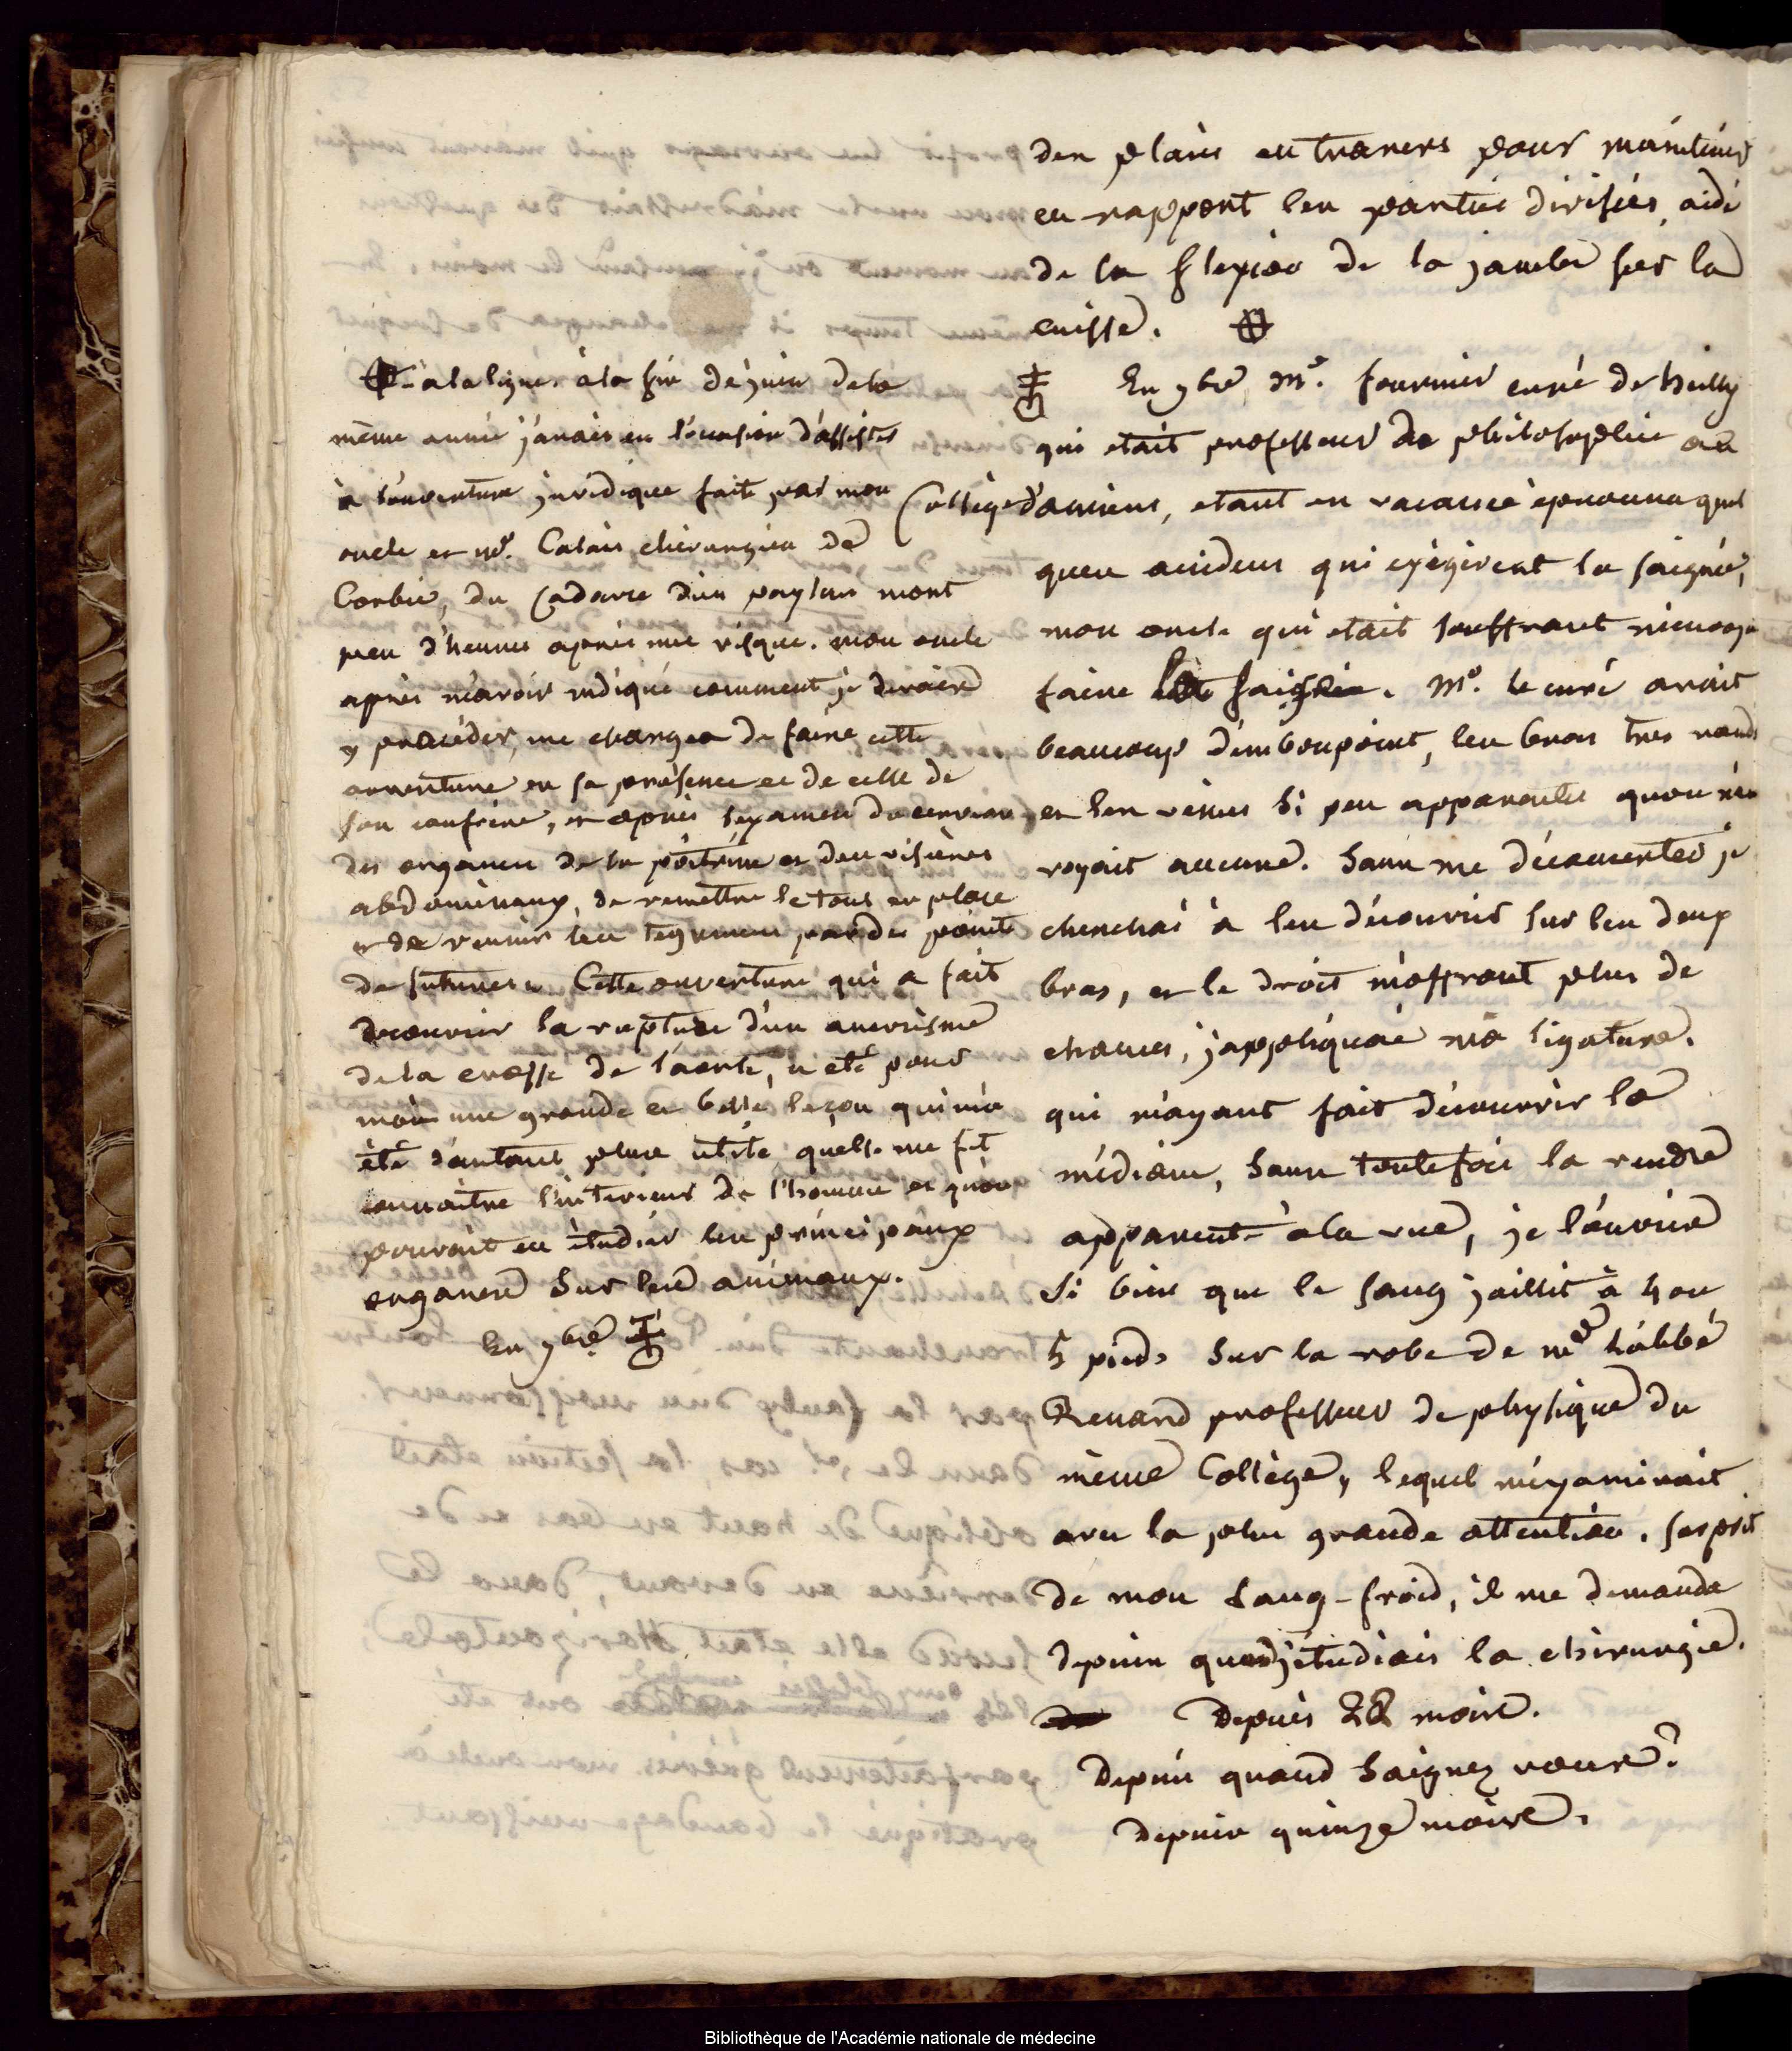 des plaies en travers pour maintenir
en rapport les parties divisées, aidé
de la flexion de la jambe sur la
cuisse.
En 9bre Mr. fournier curé de heilly
qui etait professeur de philosophie au
Collège d'amiens, etant en vacance éprouva quel
ques accidens qui exigèrent la saignée,
mon oncle qui etait souffrant m'envoya
faire la saignée. Mr. le curé avait
beaucoup d'embonpoint, les bras tres ronds
et les veines si peu apparentes qu'on n'en
voyait aucune. Sans me déconcerter je
cherchai à les découvrir sur les deux
bras, et le droit m'offrant plus de
chances, j'appliquai ma ligature.
qui m'ayant fait découvrir la
médiane, sans toutefois la rendre
apparente à la vue, je l'ouvris
si bien que le sang jaillit à 4 ou
5 pieds sur la robe de mr l'abbé
Renard professeur de physique du
même Collège, lequel m'examinait
avec la plus grande attention. surpris
de mon sang-froid, il me demanda
depuis quand j'etudiais la chirurgie.
Depuis 28 mois.
Depuis quand saignez vous?
depuis quinze mois.
a la ligne. à la fin de juin de la
même année j'avais eu l'occasion d'assister
à l'ouverture juridique faite par mon
oncle et mr. Calais chirurgien de
Corbie, du cadavre d'un paysan mort
peu d'heures après une risque. mon oncle
après m'avoir indiqué comment je devais
y procéder, me chargea de faire cette
ouverture en sa présence et de celle de
son confrère, et après l'examen du cerveau,
des organes de la poitrine et des viscères
abdominaux, de remettre le tout en place
et de reunir les tegumens par des points
de sutures. Cette ouverture qui a fait
decouvrir la rupture d'un anevrisme
de la crosse de l'aorte, a été pour
moi une grande et belle leçon qui m'a
été d'autant plus utile quelle me fit
connaitre l'interieur de l'homme et qu'on
pouvait en étudier les principaux
organes sur les animaux.
En 9bre